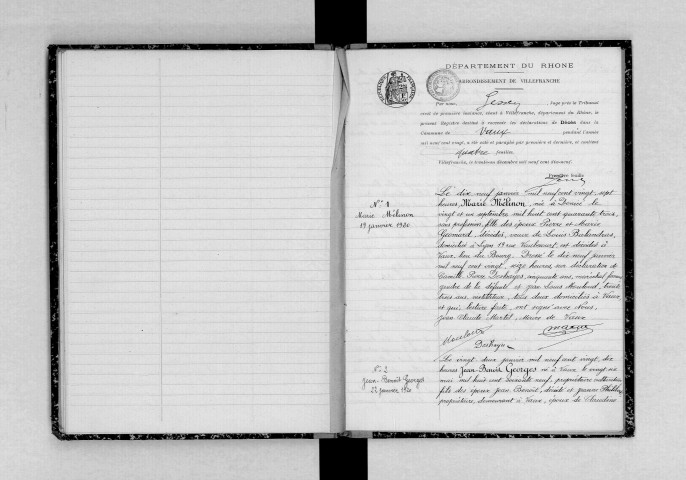 DÉPARTEMENT DU RHONE
ARRONDISSEMENT DE VILLEFRANCHE
Par nous, Juge près le Tribunal
civil de première instance, séant à Villefranche, département du Rhône, le
présent Registre destiné à recevoir les déclarations de Décès dans la
Commune de Vaux pendant l'année
mil neuf cent vingt, a été coté et paraphé par première et dernière, et contient
quatre feuilles.
Villefranche, le décembre mil neuf cent dix-neuf.
Première feuille
N° 1
Marie Mélinon
19 janvier 1920
Le dix neuf janvier mil neuf cent vingt, sept
heures, Marie Mélinon, née à Denicé le
vingt et un septembre mil huit cent quarante trois,
sans profession, fille des époux Pierre et Marie
décédés, veuve de Louis
domiciliée à Lyon 19 rue est décédée à
Vaux, lieu du Bourg. Dressé le dix neuf janvier
mil neuf cent vingt, seize heures, sur déclaration de
Pierre Deshayes, cinquante ans, maréchal
gendre de la défunte et Jean Louis trente
trois ans, instituteur, tous deux domiciliés à Vaux,
et qui, lecture faite, ont signé avec Nous,
Jean Claude Maire de Vaux
Deshayes
N° 2
Jean-Benoît Georges
22 janvier 1920
Le vingt deux janvier mil neuf cent vingt, dix
heures Jean Benoît Georges né à Vaux, le vingt six
mai mil huit cent soixante neuf, propriétaire
fils des époux Jean Benoît, décédé et Jeanne
propriétaire, demeurant à Vaux, époux de Claudine